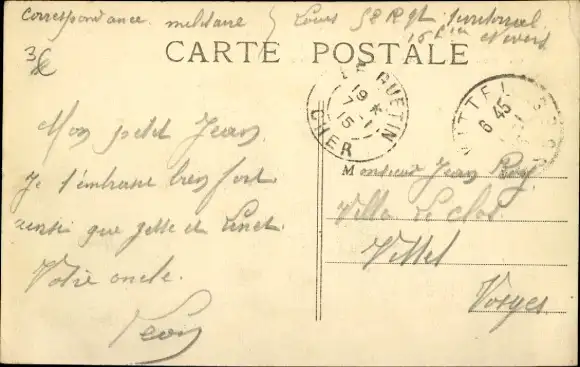 Correspondance militaire
Louis 58 Rgt territorial
CARTE POSTALE
LE GUETIN
19 *
7-1
15
CHER
VITTEL
6 45
Mon petit Jean
Je t'embrasse bien fort
ainsi que et
Votre oncle.
Monsieur Jean Roy
Villa Le clos
Vittel
Vosges